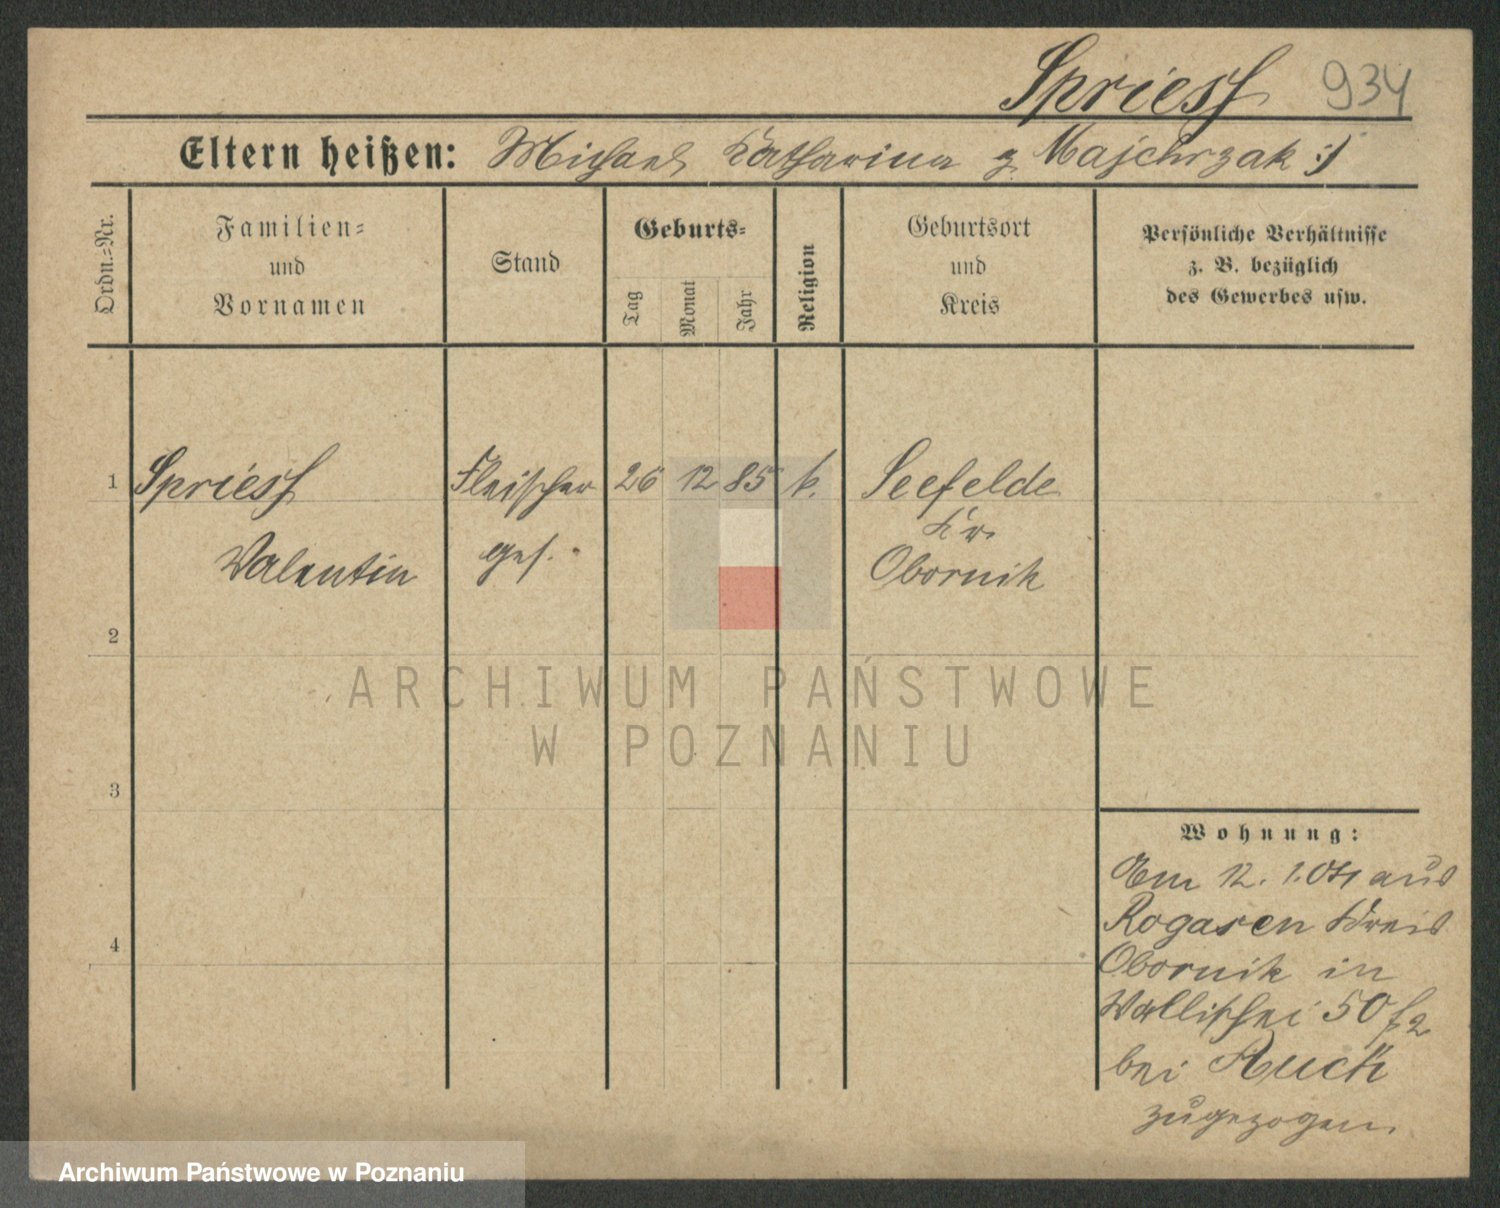 Spriess 934
Eltern heißen: Michael Katharina g. Majchrzak :/
Ordn.-Nr.
Familien-
und
Vornamen
Stand
Geburts-
Tag
Monat
Jahr
Religion
Geburtsort
und
Kreis
Persönliche Verhältnisse
z. B. bezüglich
des Gewerbes usw.
1 Spriess Fleischer 26 12 85 k. Seefelde
Kr.
Valentin ges. Obornik
2
3
4
Wohnung:
Am 12. 1. 04 aus
Rogasen Kreis
Obornik in
Wallischei 50
bei Ruck
zugezogen.
ARCHIWUM PAŃSTWOWE
W POZNANIU
Archiwum Państwowe w Poznaniu